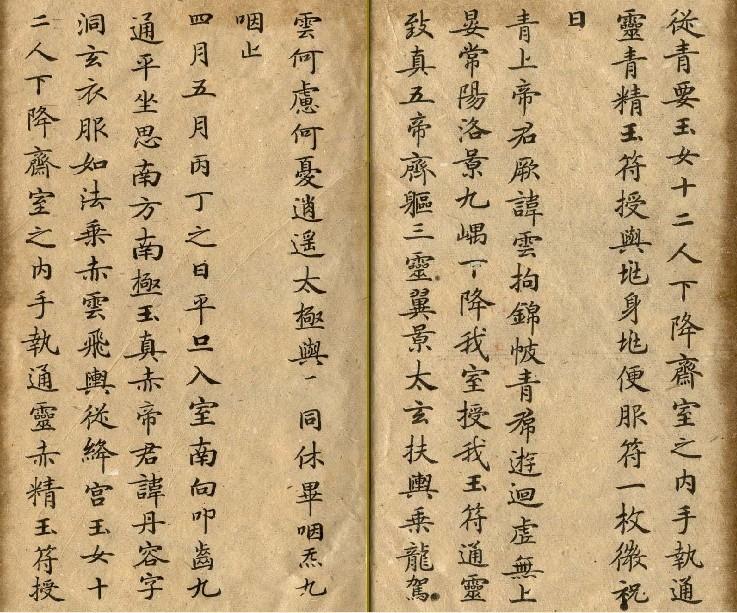 從青要玉女十二人下降齋室之內手執通
靈青精玉符授與兆身兆便服符一枚微祝
曰
青上帝君厥諱雲拘錦帔青帬遊迴虛無上
晏常陽洛景九嵎下降我室授我玉符通靈
致真五帝齊軀三靈翼景太玄扶輿乘龍駕
雲何慮何憂逍遥太極與同休畢咽炁九
咽止
四月五月丙丁之日平旦入室南向叩齒九
通平坐思南方南極玉真赤帝君諱丹容字
洞玄衣服如法乘赤雲飛輿從絳宮玉女十
二人下降齋室之內手執通靈赤精玉符授